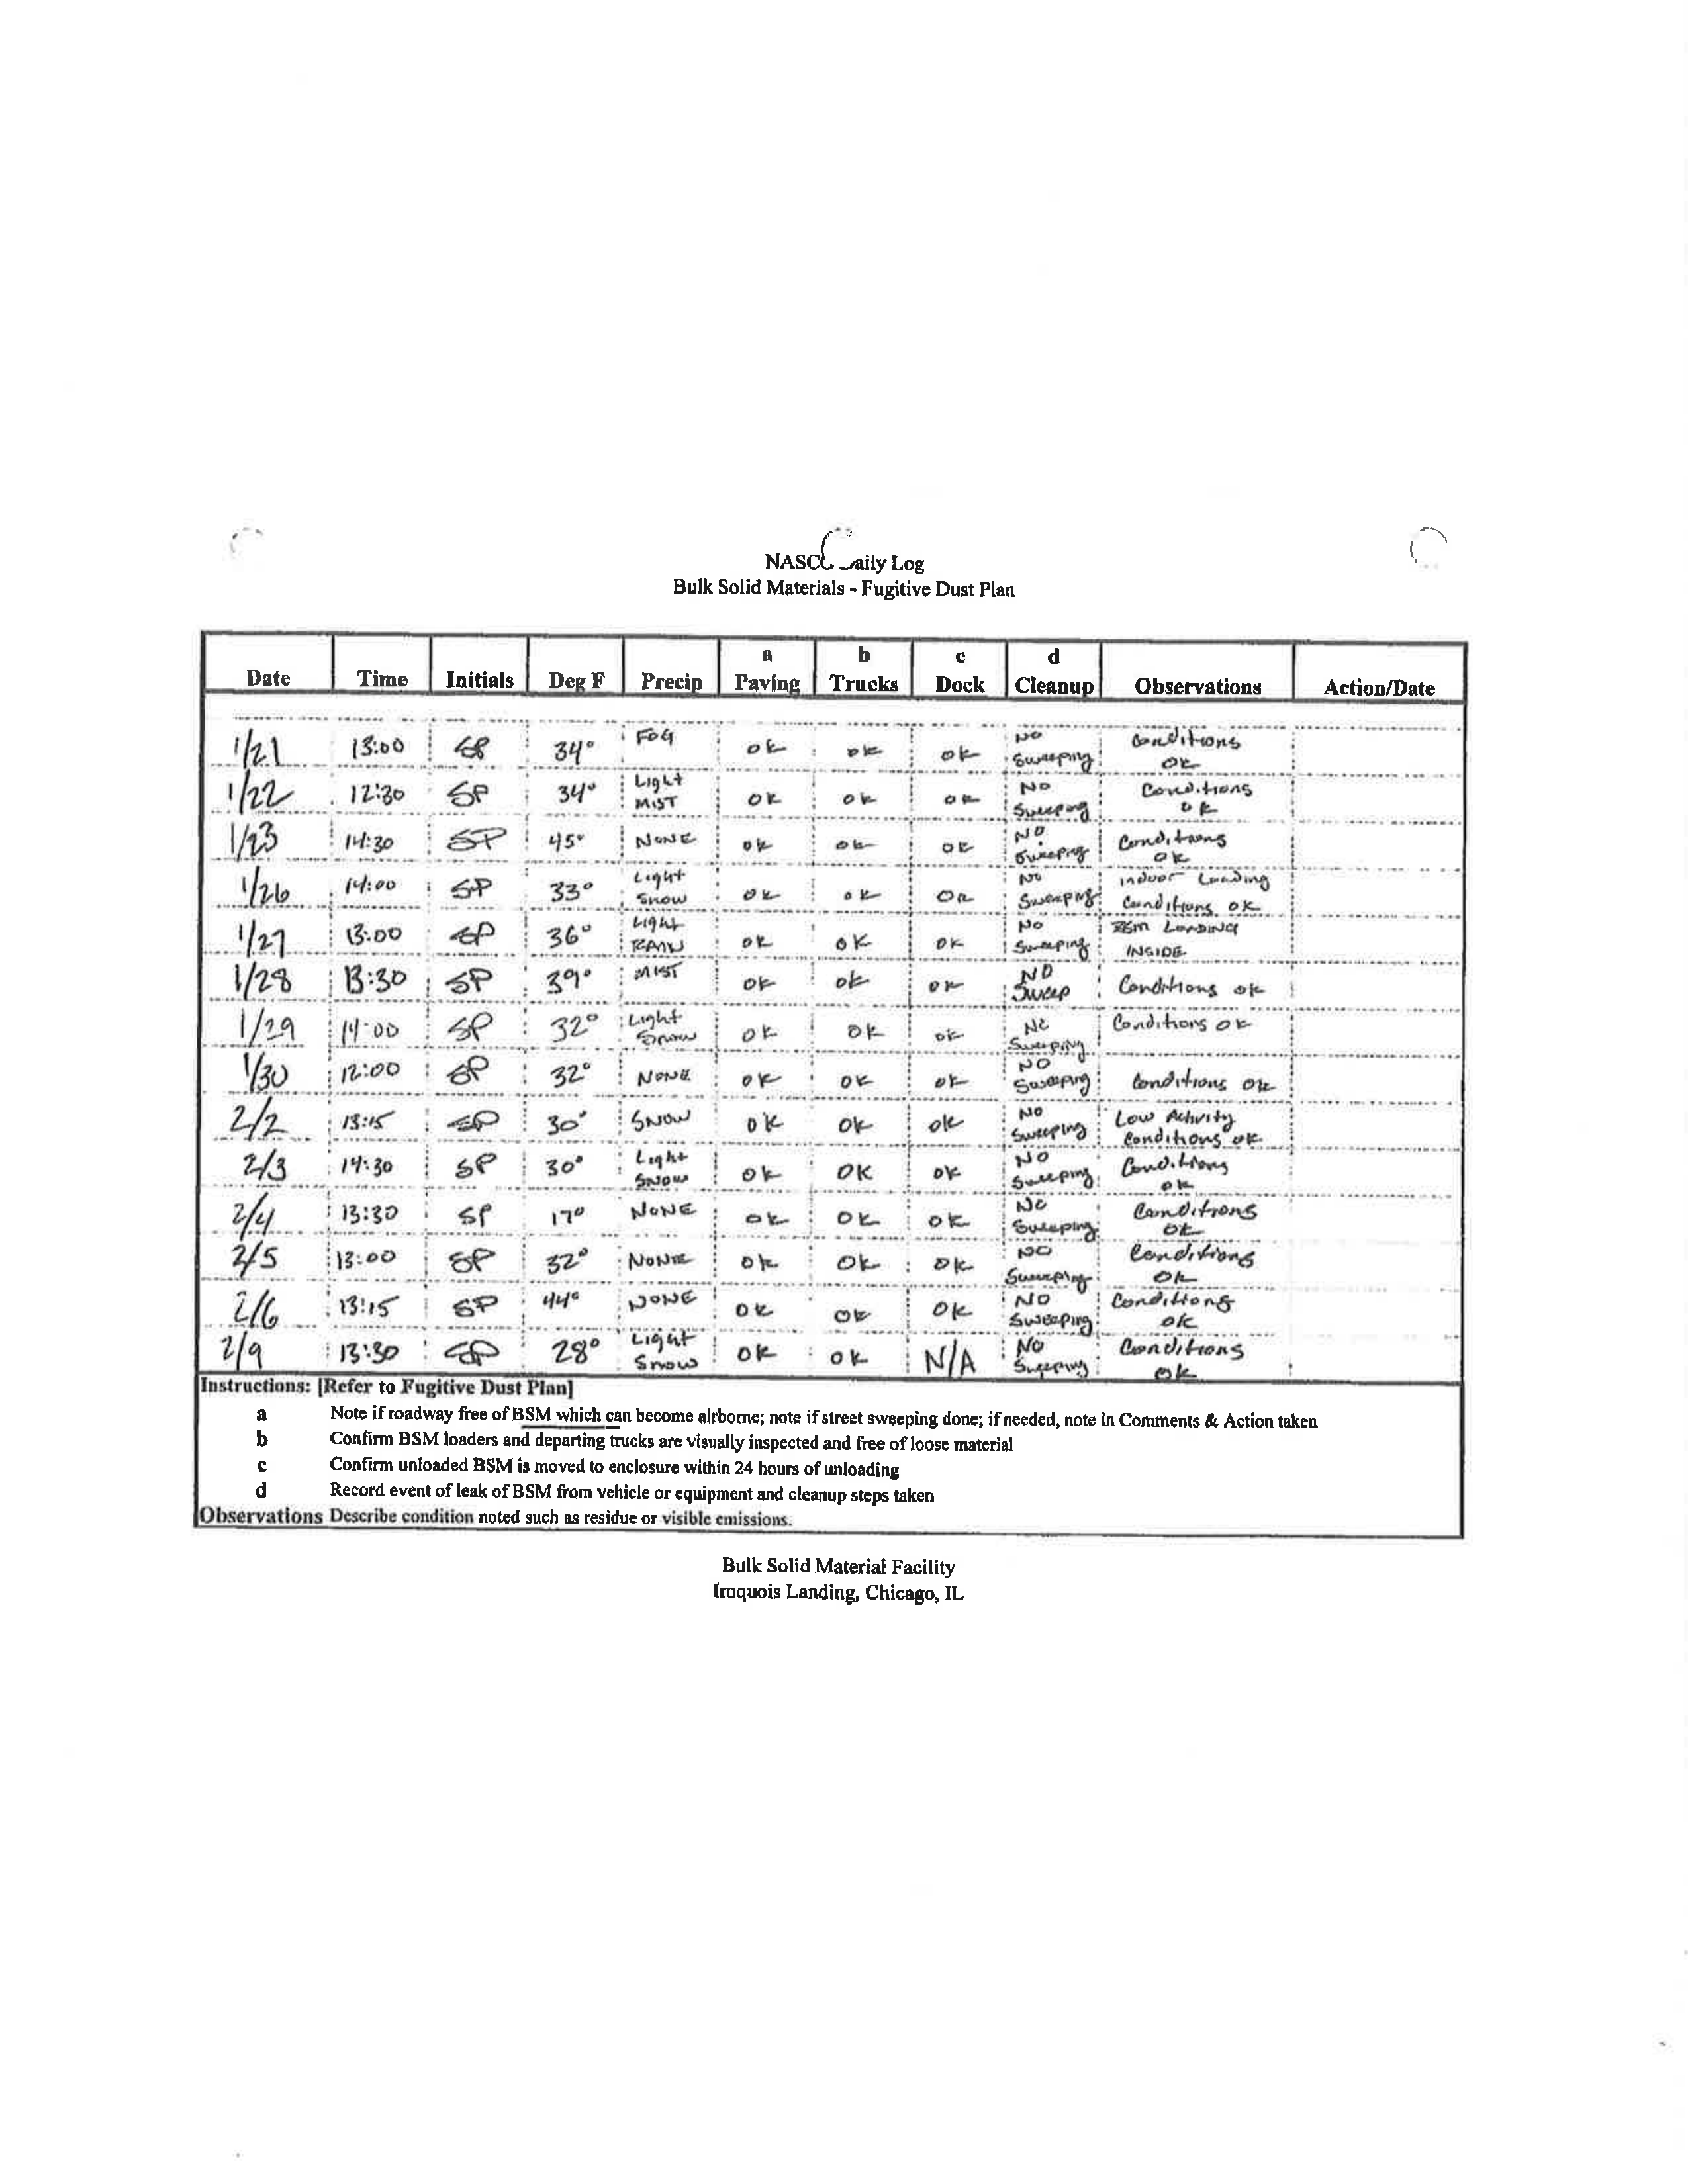 NASCO Daily Log
Bulk Solid Materials - Fugitive Dust Plan
Date Time Initials Deg F Precip a Paving b Trucks c Dock d Cleanup Observations Action/Date
1/21 13:00 SP 34° FOG ok ok ok No Sweeping Conditions ok
1/22 12:30 SP 34° Light MIST ok ok ok No Sweeping Conditions ok
1/23 14:30 SP 45° NONE ok ok ok NO Sweeping Conditions ok
1/26 14:00 SP 33° Light Snow ok ok OK No Sweeping indoor Loading Conditions ok
1/27 13:00 SP 36° Light RAIN ok OK OK No Sweeping BSM LOADING INSIDE
1/28 13:30 SP 39° MIST OK ok ok NO Sweep Conditions ok
1/29 14:00 SP 32° Light Snow ok ok ok No Sweeping Conditions ok
1/30 12:00 SP 32° NONE ok ok ok NO Sweeping Conditions ok
2/2 13:15 SP 30° SNOW ok ok ok NO Sweeping Low Activity Conditions ok
2/3 14:30 SP 30° Light Snow ok OK ok NO Sweeping Conditions ok
2/4 13:30 SP 17° NONE ok OK ok No Sweeping Conditions OK
2/5 13:00 SP 32° NONE ok Ok OK NO Sweeping Conditions Ok
2/6 13:15 SP 44° NONE OK OK OK NO Sweeping Conditions ok
2/9 13:30 SP 28° Light Snow OK OK N/A NO Sweeping Conditions ok
Instructions: [Refer to Fugitive Dust Plan]
a Note if roadway free of BSM which can become airborne; note if street sweeping done; if needed, note in Comments & Action taken
b Confirm BSM loaders and departing trucks are visually inspected and free of loose material
c Confirm unloaded BSM is moved to enclosure within 24 hours of unloading
d Record event of leak of BSM from vehicle or equipment and cleanup steps taken
Observations Describe condition noted such as residue or visible emissions.
Bulk Solid Material Facility
Iroquois Landing, Chicago, IL